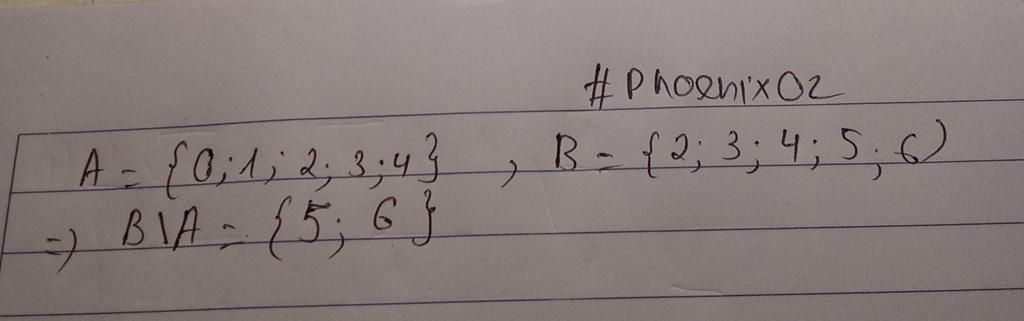 #Phoenix02
A = {0;1;2;3;4} , B = {2;3;4;5;6)
=) B\A = {5;6}